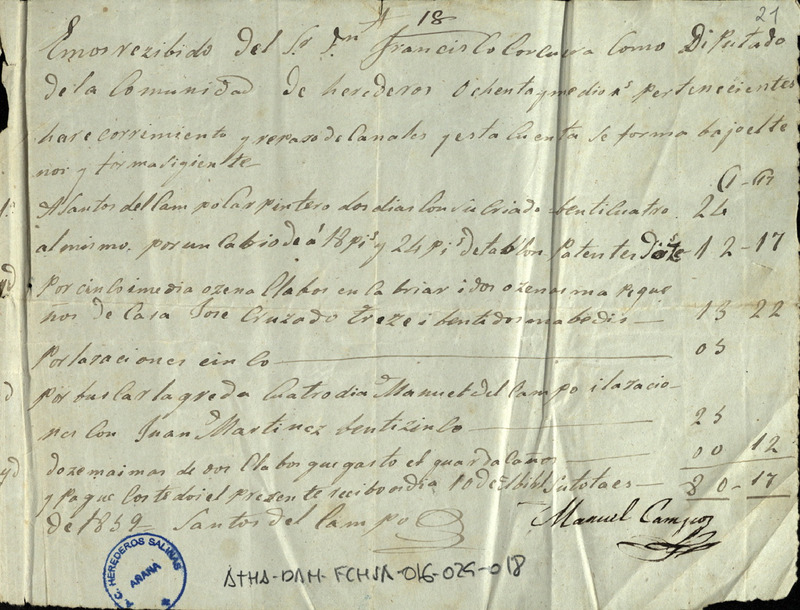 18
21
Emos rezibido del Sr Dn Francisco Corcuera Como Diputado
de la Comunidad de herederos Ochenta y medio rs pertenecientes
hare corrimiento y repaso de Canales y esta Cuenta se forma bajo el te
nor y forma sigiente
A Santos del Campo Carpintero dos dias Con su Criado benticuatro 24
al mismo por un Cabrio de á 18 pis y 24 pis de tablon 12-17
Por cinco i media ozena Clabos en Cabriar i dos ozenas mas peque
ños de Casa Jose Cruzado treze i bentidos mabedis 13 22
Por las raciones cinco 05
por buscar la greda Cuatro dia Manuel del Campo i la racio-
nes con Juan Martinez bentizinco 25
doze mais mas de dos Clabos que gasto el guarda Canos 00 12
y Paque Coste doi el prezente recibo oi dia 10 de Su total es 80-17
de 1859 Santos del Campo Manuel Campo
C. HEREDEROS SALINAS
AÑANA
ATHA-DAH-FCHSA-016-029-018